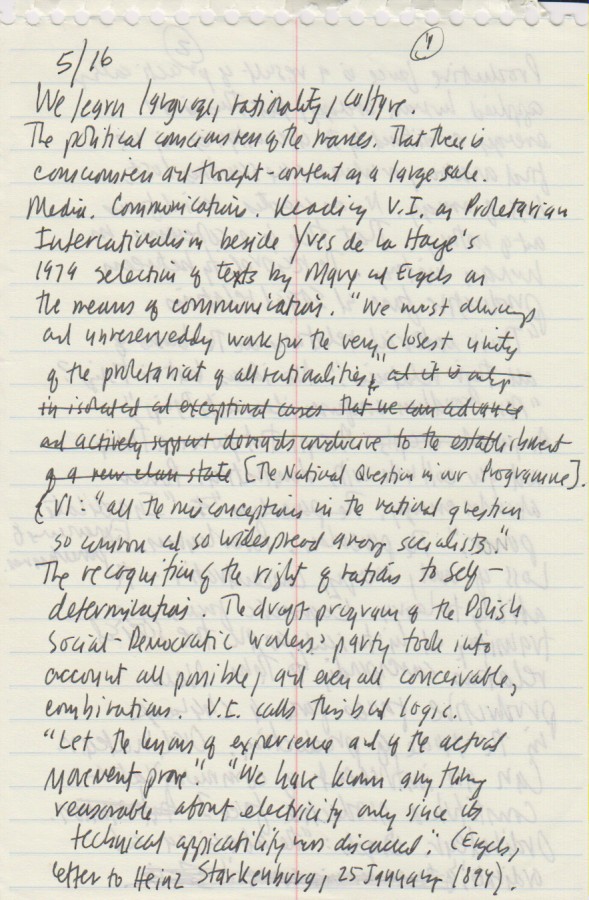 1
5/16
We learn language, rationality, culture.
The political consciousness of the masses. That there is
consciousness and thought-content on a large scale.
Media. Communication. Reading V.I. on Proletarian
Internationalism beside Yves de la Haye's
1979 selection of texts by Marx and Engels on
the means of communication. "We must always
and unreservedly work for the very closest unity
of the proletariat of all nationalities," and it is only
in isolated and exceptional cases that we can advance
and actively support demands conducive to the establishment
of a new class state [The National Question in our Programme].
VI: "all the misconceptions in the national question
so common and so widespread among socialists."
The recognition of the right of nations to self-
determination. The draft program of the Polish
Social-Democratic workers' party took into
account all possible, and even all conceivable,
combinations. V.I. calls this bad logic.
"Let the lessons of experience and of the actual
movement prove" "We have known anything
reasonable about electricity only since its
technical applicability was discovered" (Engels,
letter to Heinz Starkenburg, 25 January 1894).